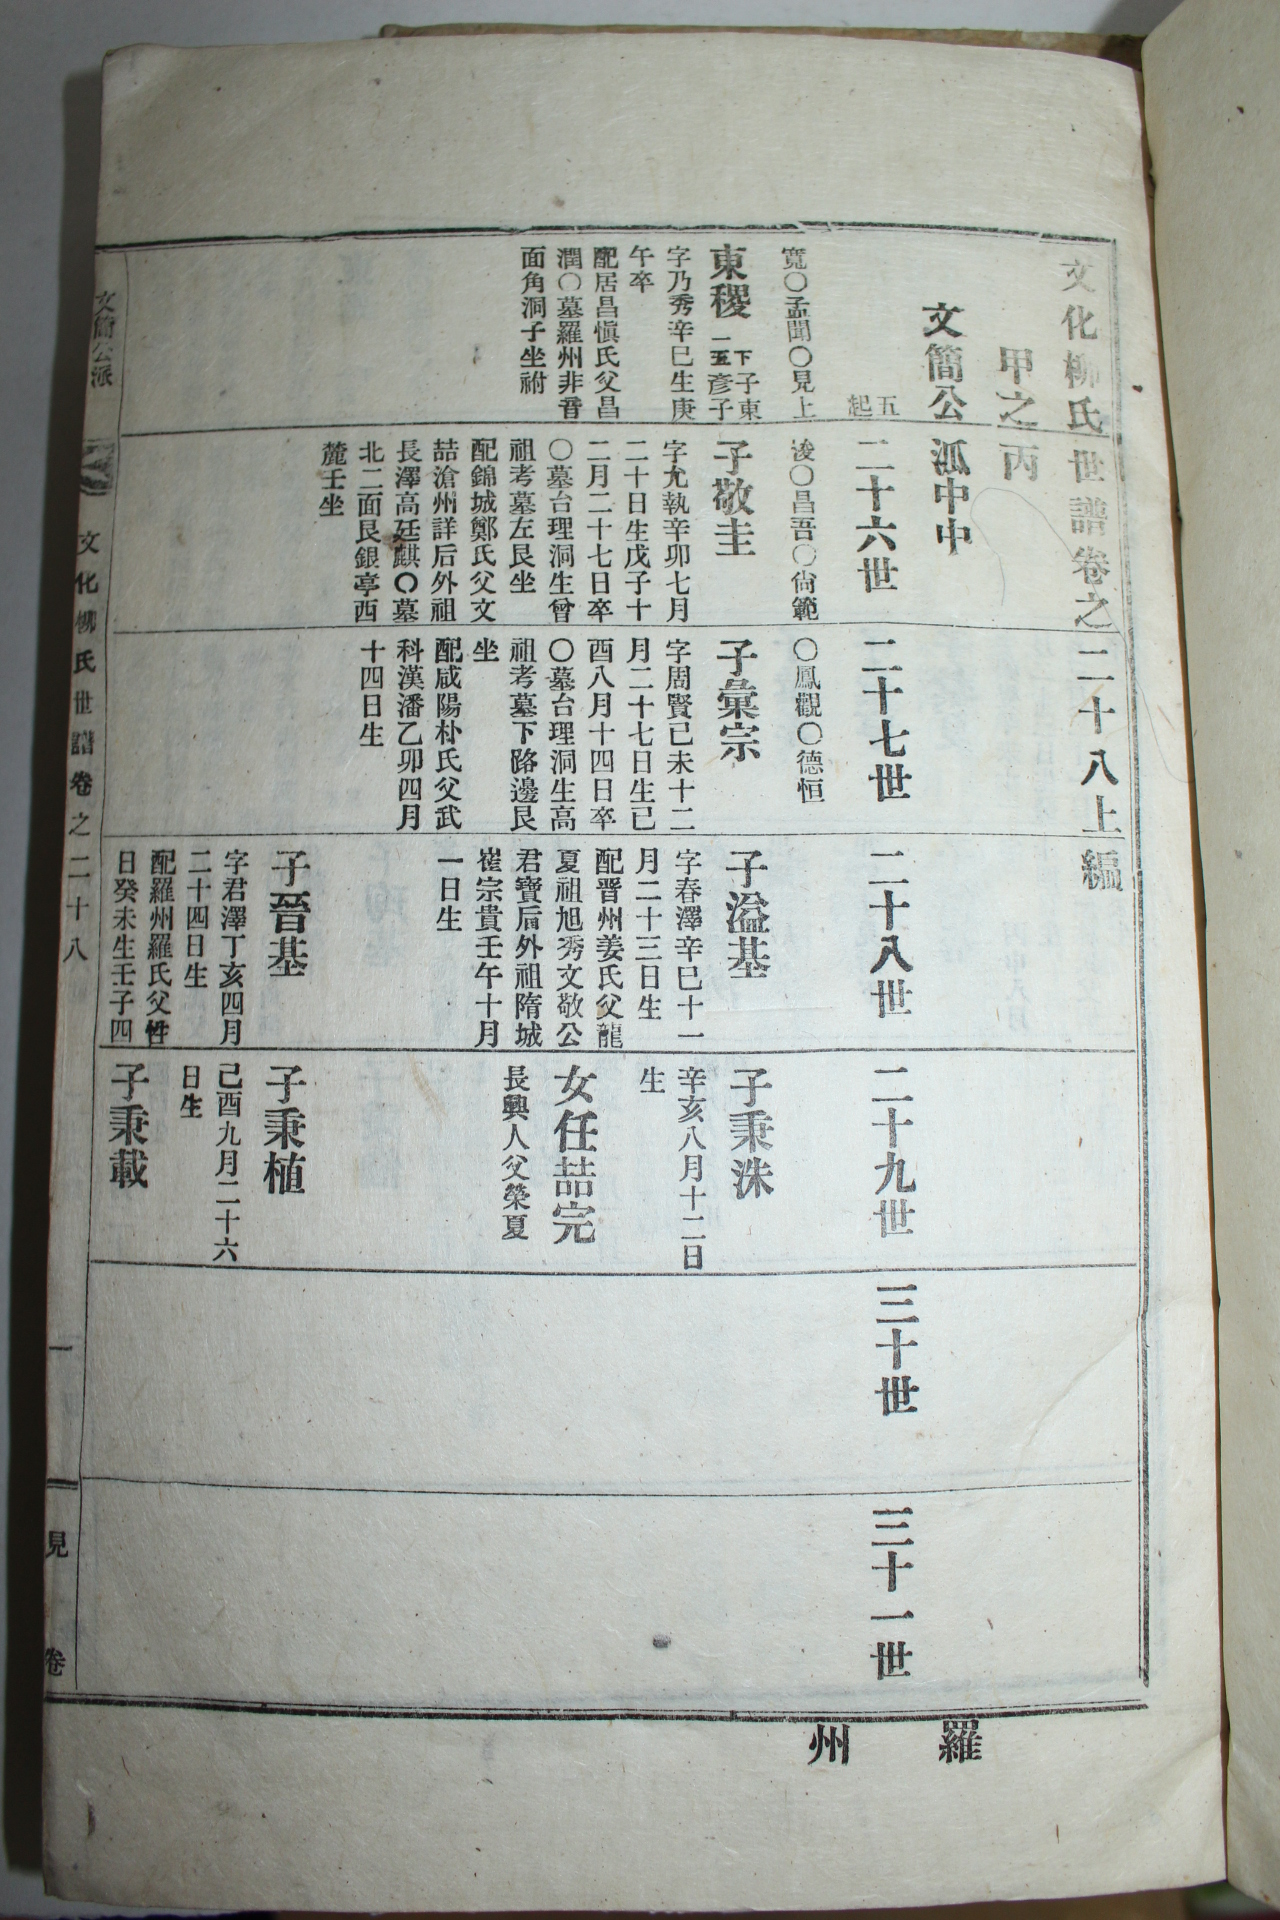 文化柳氏世譜卷之二十八上編
甲之丙
文簡公派中中
五
起
二十六世
二十七世
二十八世
二十九世
三十世
三十一世
寬○孟聞○見上
浚○昌吾○尙範
○鳳觀○德恒
東稷
下子東
一五彦子
字乃秀辛巳生庚
午卒
配居昌愼氏父昌
潤○墓羅州非音
面角洞子坐祔
子敬圭
字允執辛卯七月
二十日生戊子十
二月二十七日卒
○墓台理洞生曾
祖考墓左艮坐
配錦城鄭氏父文
喆滄州詳后外祖
長澤高廷麒○墓
北二面艮銀亭西
麓壬坐
子彙宗
字周賢己未十二
月二十七日生己
酉八月十四日卒
○墓台理洞生高
祖考墓下路邊艮
坐
配咸陽朴氏父武
科漢潘乙卯四月
十四日生
子溢基
字春澤辛巳十一
月二十三日生
配晋州姜氏父龍
夏祖旭秀文敬公
君寶后外祖隋城
崔宗貴壬午十月
一日生
子晉基
字君澤丁亥四月
二十四日生
配羅州羅氏父
日癸未生壬子四
子秉洙
辛亥八月十二日
生
女任喆完
長興人父榮夏
子秉植
己酉九月二十六
日生
子秉載
文簡公派
文化柳氏世譜卷之二十八
一
見
卷
羅
州